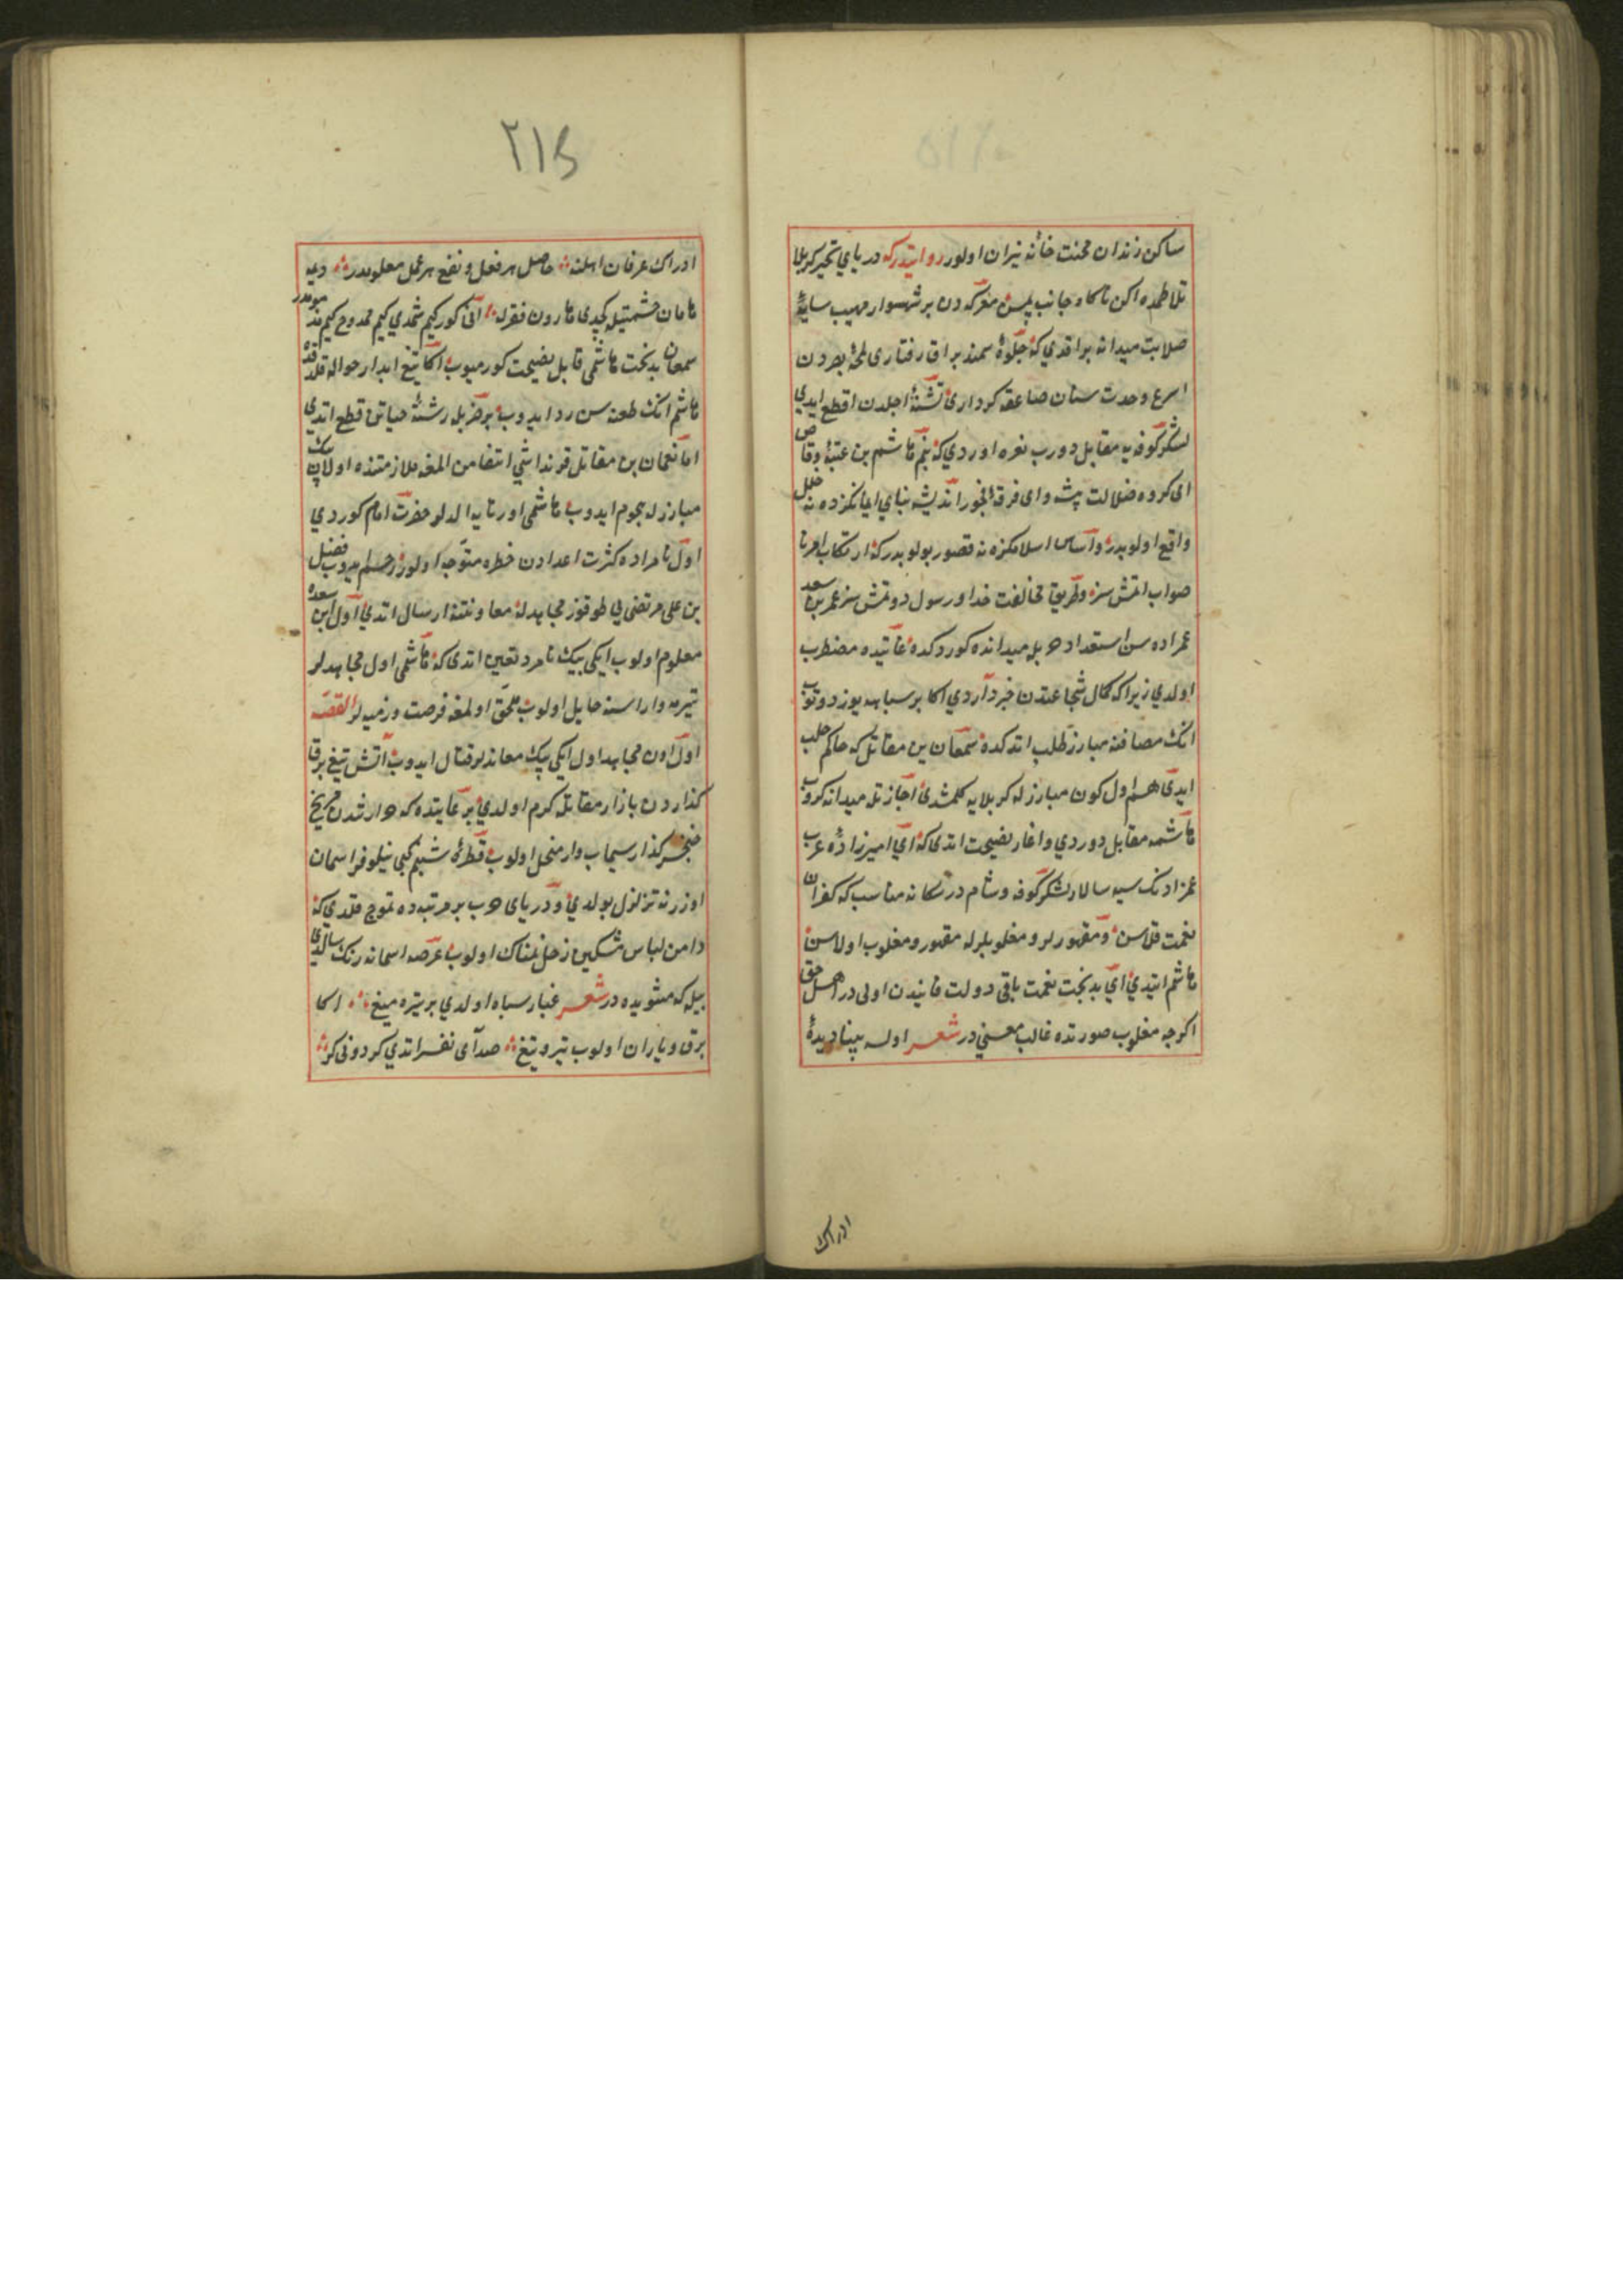 ساكن زندان محنت خانهٔ نیران اولور روایتدركه دریای تحیر كربلا
تلاطمده اكن ناكاه جانب یمین معركه دن بر شهسوار مهیب سایهٔ
صلابت میدانه براقدی كه جلوهٔ سمند براق رفتاری لمحهٔ بصردن
اسرع وحدت سنان صاعقه كرداری تشنهٔ اجلدن اقطع ایدی
لشكر كوفه یه مقابل دورب نعره اوردی كه بنم هاشم بن عتبهٔ وقاص
ای كروه ضلالت پیشه وای فرقهٔ اندیشه بنای ایمانكزده نه خلل
واقع اولوبدر واساس اسلامكزه نه قصور بولوبدر كه ارتكاب امر نا
صواب اتمش سز وطریق مخالفت خدا ورسول دوتمش سز عمر بن سعد
عمزاده سن استعداد حربله میدانده كوردكده غایتده مضطرب
اولدی زیراكه كمال شجاعتدن خبرداردی اكا بر سپاهه یوز دوتوب
انك مصافنه مبارز طلب اتدكده سمعان بن مقاتل كه حاكم حلب
ایدی هم اول كون مبارزله كربلایه كلمشدی اجازتله میدانه كروب
هاشمه مقابل دوردی واغاز نصیحت اتدی كه ای امیرزادهٔ عرب
عمزادنك سپه سالار لشكر كوفه وشام در سكا نه مناسب كه كفران
نعمت قلاسن ومقهورلر ومغلوبلرله مقهور ومغلوب اولاسن
هاشم ایتدی ای بدبخت نعمت باقی دولت فانیدن اولی در اهل حق
اكرچه مغلوب صورتده غالب معنی در شعر اوله بینا دیدهٔ
ادراك
٢١٥
ادراك عرفان اهلنه حاصل هر فعل ونفع هر عمل معلومدر دیه
هامان حشمتیله كچدی هارون فقرله انی كور كیم شمدی كیم ممدوح كیم مذمومدر
سمعان بدبخت هاشمی قابل نصیحت كورمیوب اكا تیغ ابدار حواله قلدقده
هاشم انك طعنه سن رد ایدوب بر ضربله رشتهٔ حیاتن قطع اتدی
اما نعمان بن مقاتل قرنداشی انتقامن المغه ملازمتنده اولان بیك
مبارزله هجوم ایدوب هاشمی اورتایه الدیلر حضرت امام كوردی
اول نامراده كثرت اعدادن خطره متوجه اولور رحم ایدوب فضل
بن علی مرتضی یی طوقوز مجاهدله معاونتنه ارسال اتدی اول ابن سعده
معلوم اولوب ایكی بیك نامرد تعیین اتدی كه هاشمی اول مجاهدلر
تیره وار اراسنه حایل اولوب ملحق اولمغه فرصت ورمیه لر القصه
اول اون مجاهد اول ایكی بیك معاندلر قتال ایدوب اتش تیغ برق
كذاردن بازار مقاتله كرم اولدی بر غایتده كه حرارتندن مریخ
خنجر كذار سیماب وار منحل اولوب قطرهٔ شبنم كبی نیلوفر اسمان
اوزرنه تزلزل بولدی ودریای حرب بر مرتبه ده تموج قلدی كه
دامن لباس مشكین زحل نمناك اولوب عرصهٔ اسمانه رنك سالدی
بیله كه مثنویده در شعر غبار سپاه اولدی بر تیره میغ اكا
برق وباران اولوب تیر وتیغ صدای نفیر اتدی كردونی كر